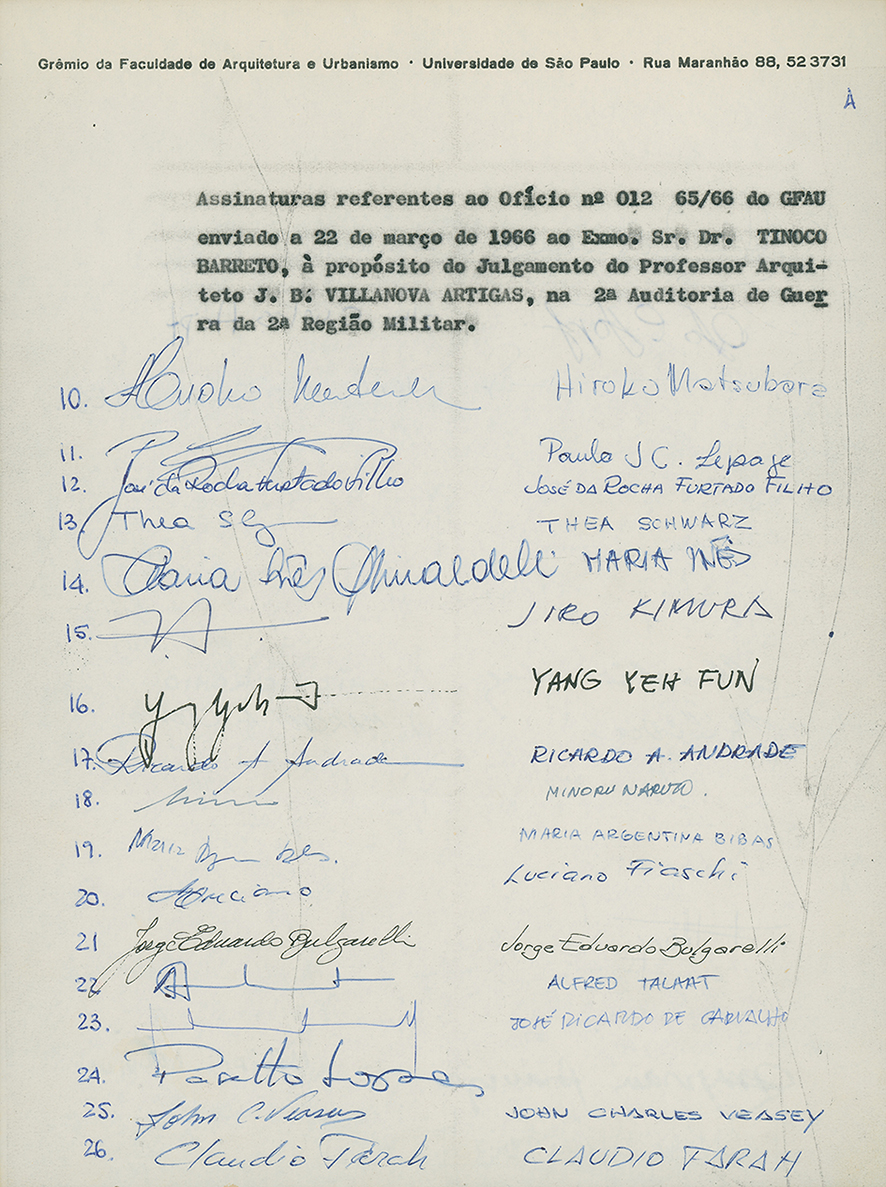 Grêmio da Faculdade de Arquitetura e Urbanismo · Universidade de São Paulo · Rua Maranhão 88, 52 3731
À
Assinaturas referentes ao Ofício nº 012 65/66 do GFAU
enviado a 22 de março de 1966 ao Exmo. Sr. Dr. TINOCO
BARRETO, à propósito do Julgamento do Professor Arqui-
teto J. B. VILLANOVA ARTIGAS, na 2ª Auditoria de Guer
ra da 2ª Região Militar.
10. Hiroko Matsubara
11. Paulo J C. Lepage
12. José da Rocha Furtado Filho JOSÉ DA ROCHA FURTADO FILHO
13. Thea THEA SCHWARZ
14. Maria Inês MARIA INÊS
15. JIRO KIMURA
16. YANG YEH FUN
17. Ricardo A Andrade RICARDO A. ANDRADE
18. MINORU NARUTO.
19. Maria MARIA ARGENTINA BIBAS
20. Luciano Luciano Fiaschi
21 Jorge Eduardo Bulgarelli Jorge Eduardo Bulgarelli
22. ALFRED TALAAT
23. JOSÉ RICARDO DE CARVALHO
24.
25. John C. Veasey JOHN CHARLES VEASEY
26. Claudio Farah CLAUDIO FARAH